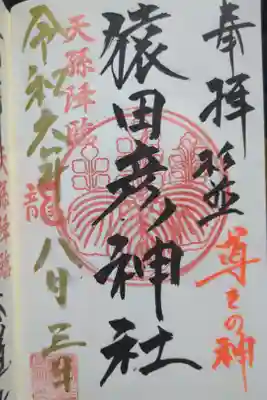 奉拝
導きの神
猿田彦神社
天孫降臨
令和六年 八月三日
龍
天孫降臨